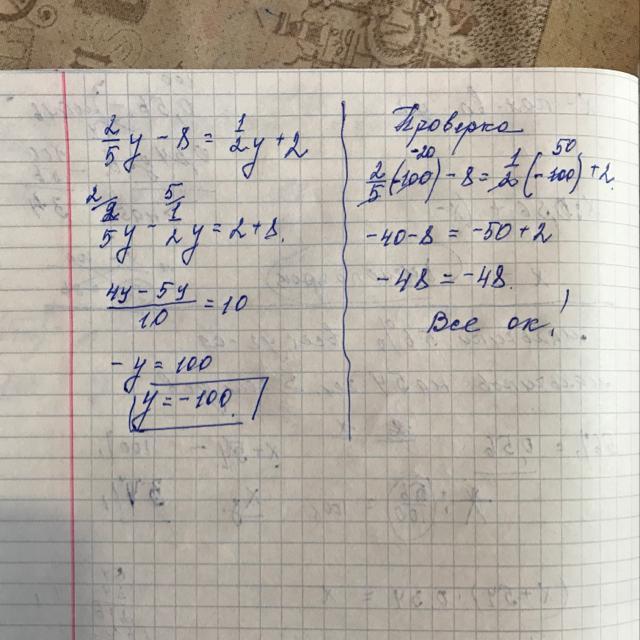 2/5 y - 8 = 1/2 y + 2
2 5
2/5 y - 1/2 y = 2 + 8.
4y - 5y / 10 = 10
- y = 100
y = -100.
Проверка
-20 50
2/5 (-100) - 8 = 1/2 (-100) + 2.
-40 - 8 = -50 + 2
-48 = -48.
Все ок!